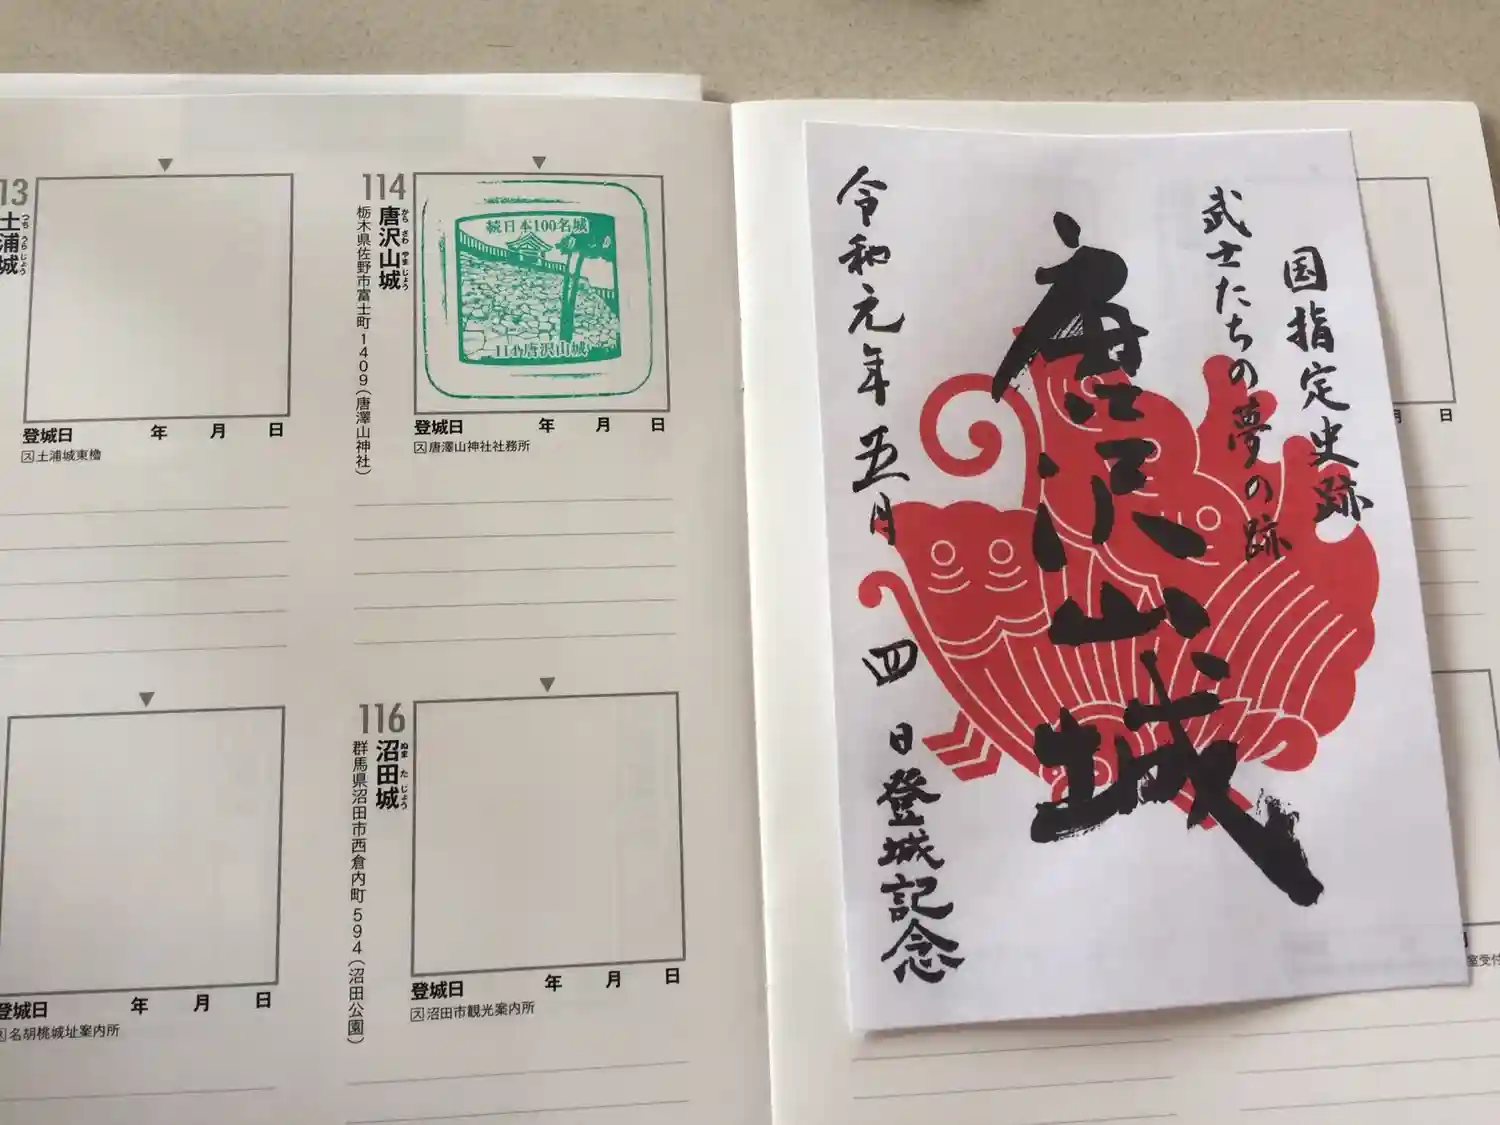 13
土浦城
つちうらじょう
登城日 年 月 日
ス土浦城東櫓
114
唐沢山城
からさわやまじょう
栃木県佐野市富士町1409(唐澤山神社)
続日本100名城
114唐沢山城
登城日 年 月 日
ス唐澤山神社社務所
登城日 年 月 日
ス名胡桃城址案内所
116
沼田城
ぬまたじょう
群馬県沼田市西倉内町594(沼田公園)
登城日 年 月 日
ス沼田市観光案内所
国指定史跡
武士たちの夢の跡
唐沢山城
令和元年五月四日登城記念
月 日
室受付